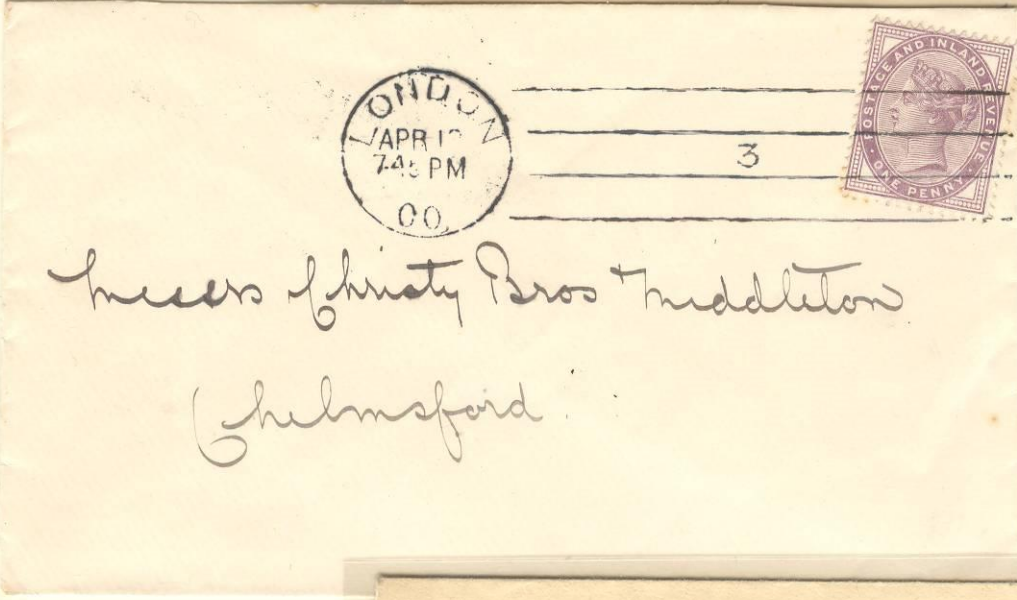 LONDON
APR 1
7.45 PM
00
3
POSTAGE AND INLAND REVENUE
ONE PENNY
Messrs Christy Bros + Middleton
Chelmsford